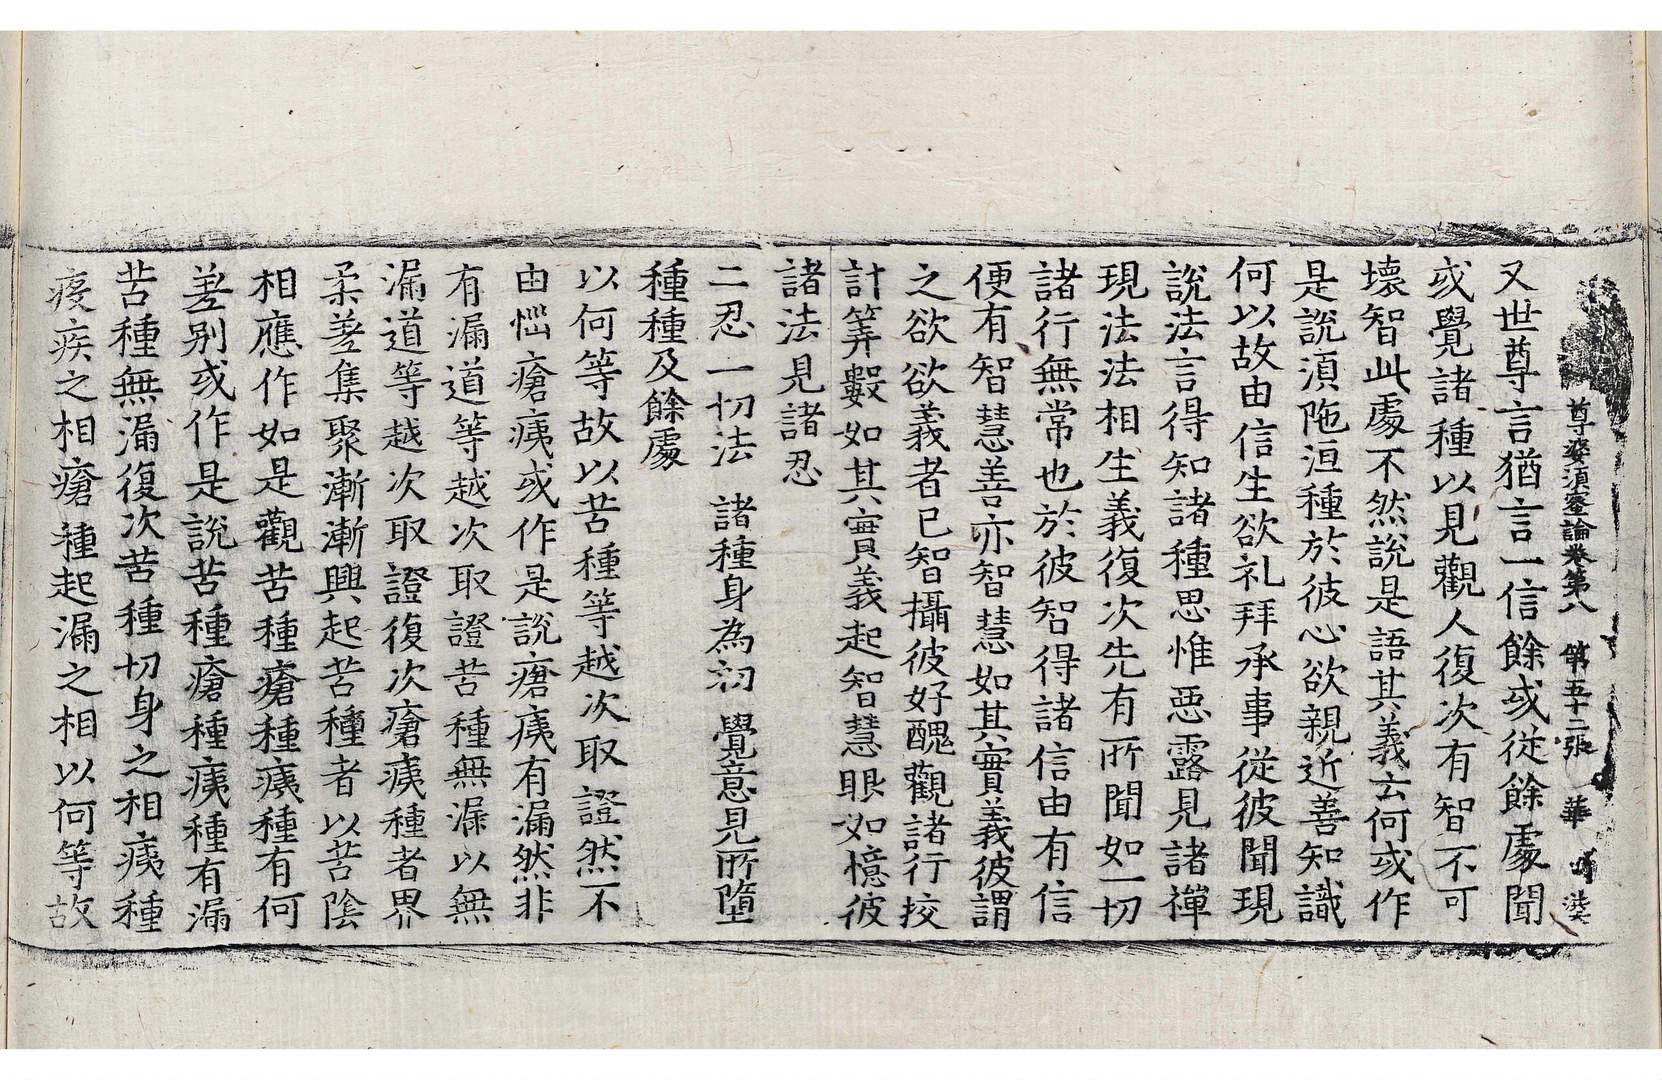 尊婆須蜜論卷第八 第五十二張 華
又世尊言猶言一信餘或從餘處聞
或覺諸種以見觀人復次有智不可
壞智此處不然說是語其義云何或作
是說須陁洹種於彼心欲親近善知識
何以故由信生欲礼拜承事從彼聞現
說法言得知諸種思惟惡露見諸禪
現法法相生義復次先有所聞如一切
諸行無常也於彼智得諸信由有信
便有智慧善亦智慧如其實義彼謂
之欲欲義者已智攝彼好醜觀諸行挍
計筭數如其實義起智慧眼如憶彼
諸法見諸忍
二忍一切法 諸種身為初 覺意見所墮
種種及餘處
以何等故以苦種等越次取證然不
由惱瘡痍或作是說瘡痍有漏然非
有漏道等越次取證苦種無漏以無
漏道等越次取證復次瘡痍種者界
柔差集聚漸漸興起苦種者以苦陰
相應作如是觀苦種瘡種痍種有何
差別或作是說苦種瘡種痍種有漏
苦種無漏復次苦種切身之相痍種
疫疾之相瘡種起漏之相以何等故